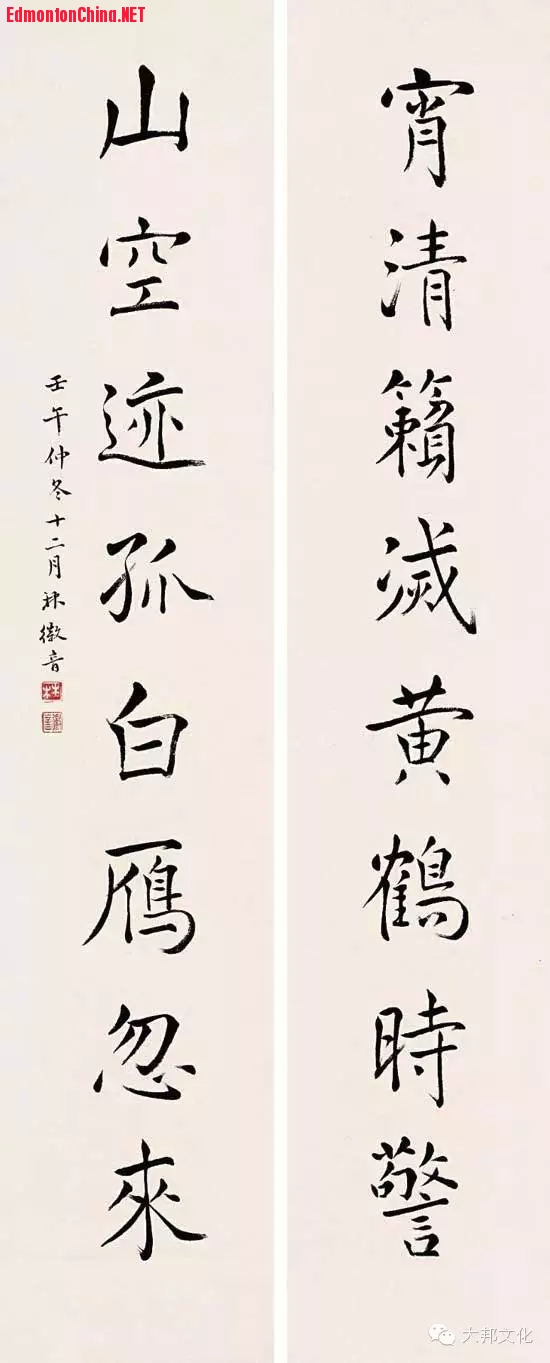 EdmontonChina.NET
宵清籟滅黄鶴時警
山空迹孤白鴈忽來
壬午仲冬十二月林徽音
林
徽音
大邦文化